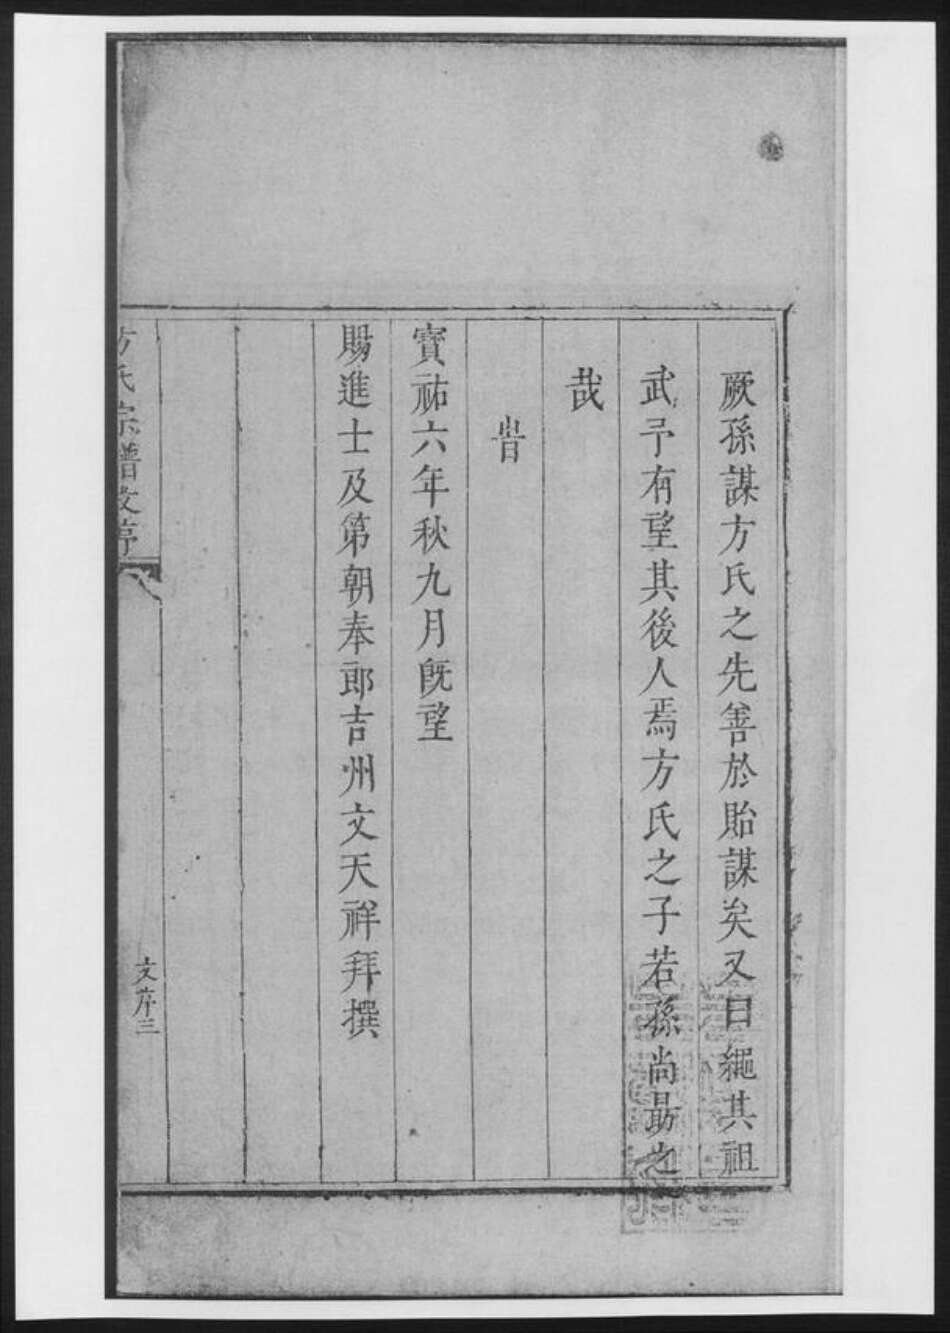 厥孫謀方氏之先善於貽謀矣又曰繩其祖
武予有望其後人焉方氏之子若孫尚勗之
哉
旹
寶祐六年秋九月旣望
賜進士及第朝奉郎吉州文天祥拜撰
方氏宗譜文序
文序三